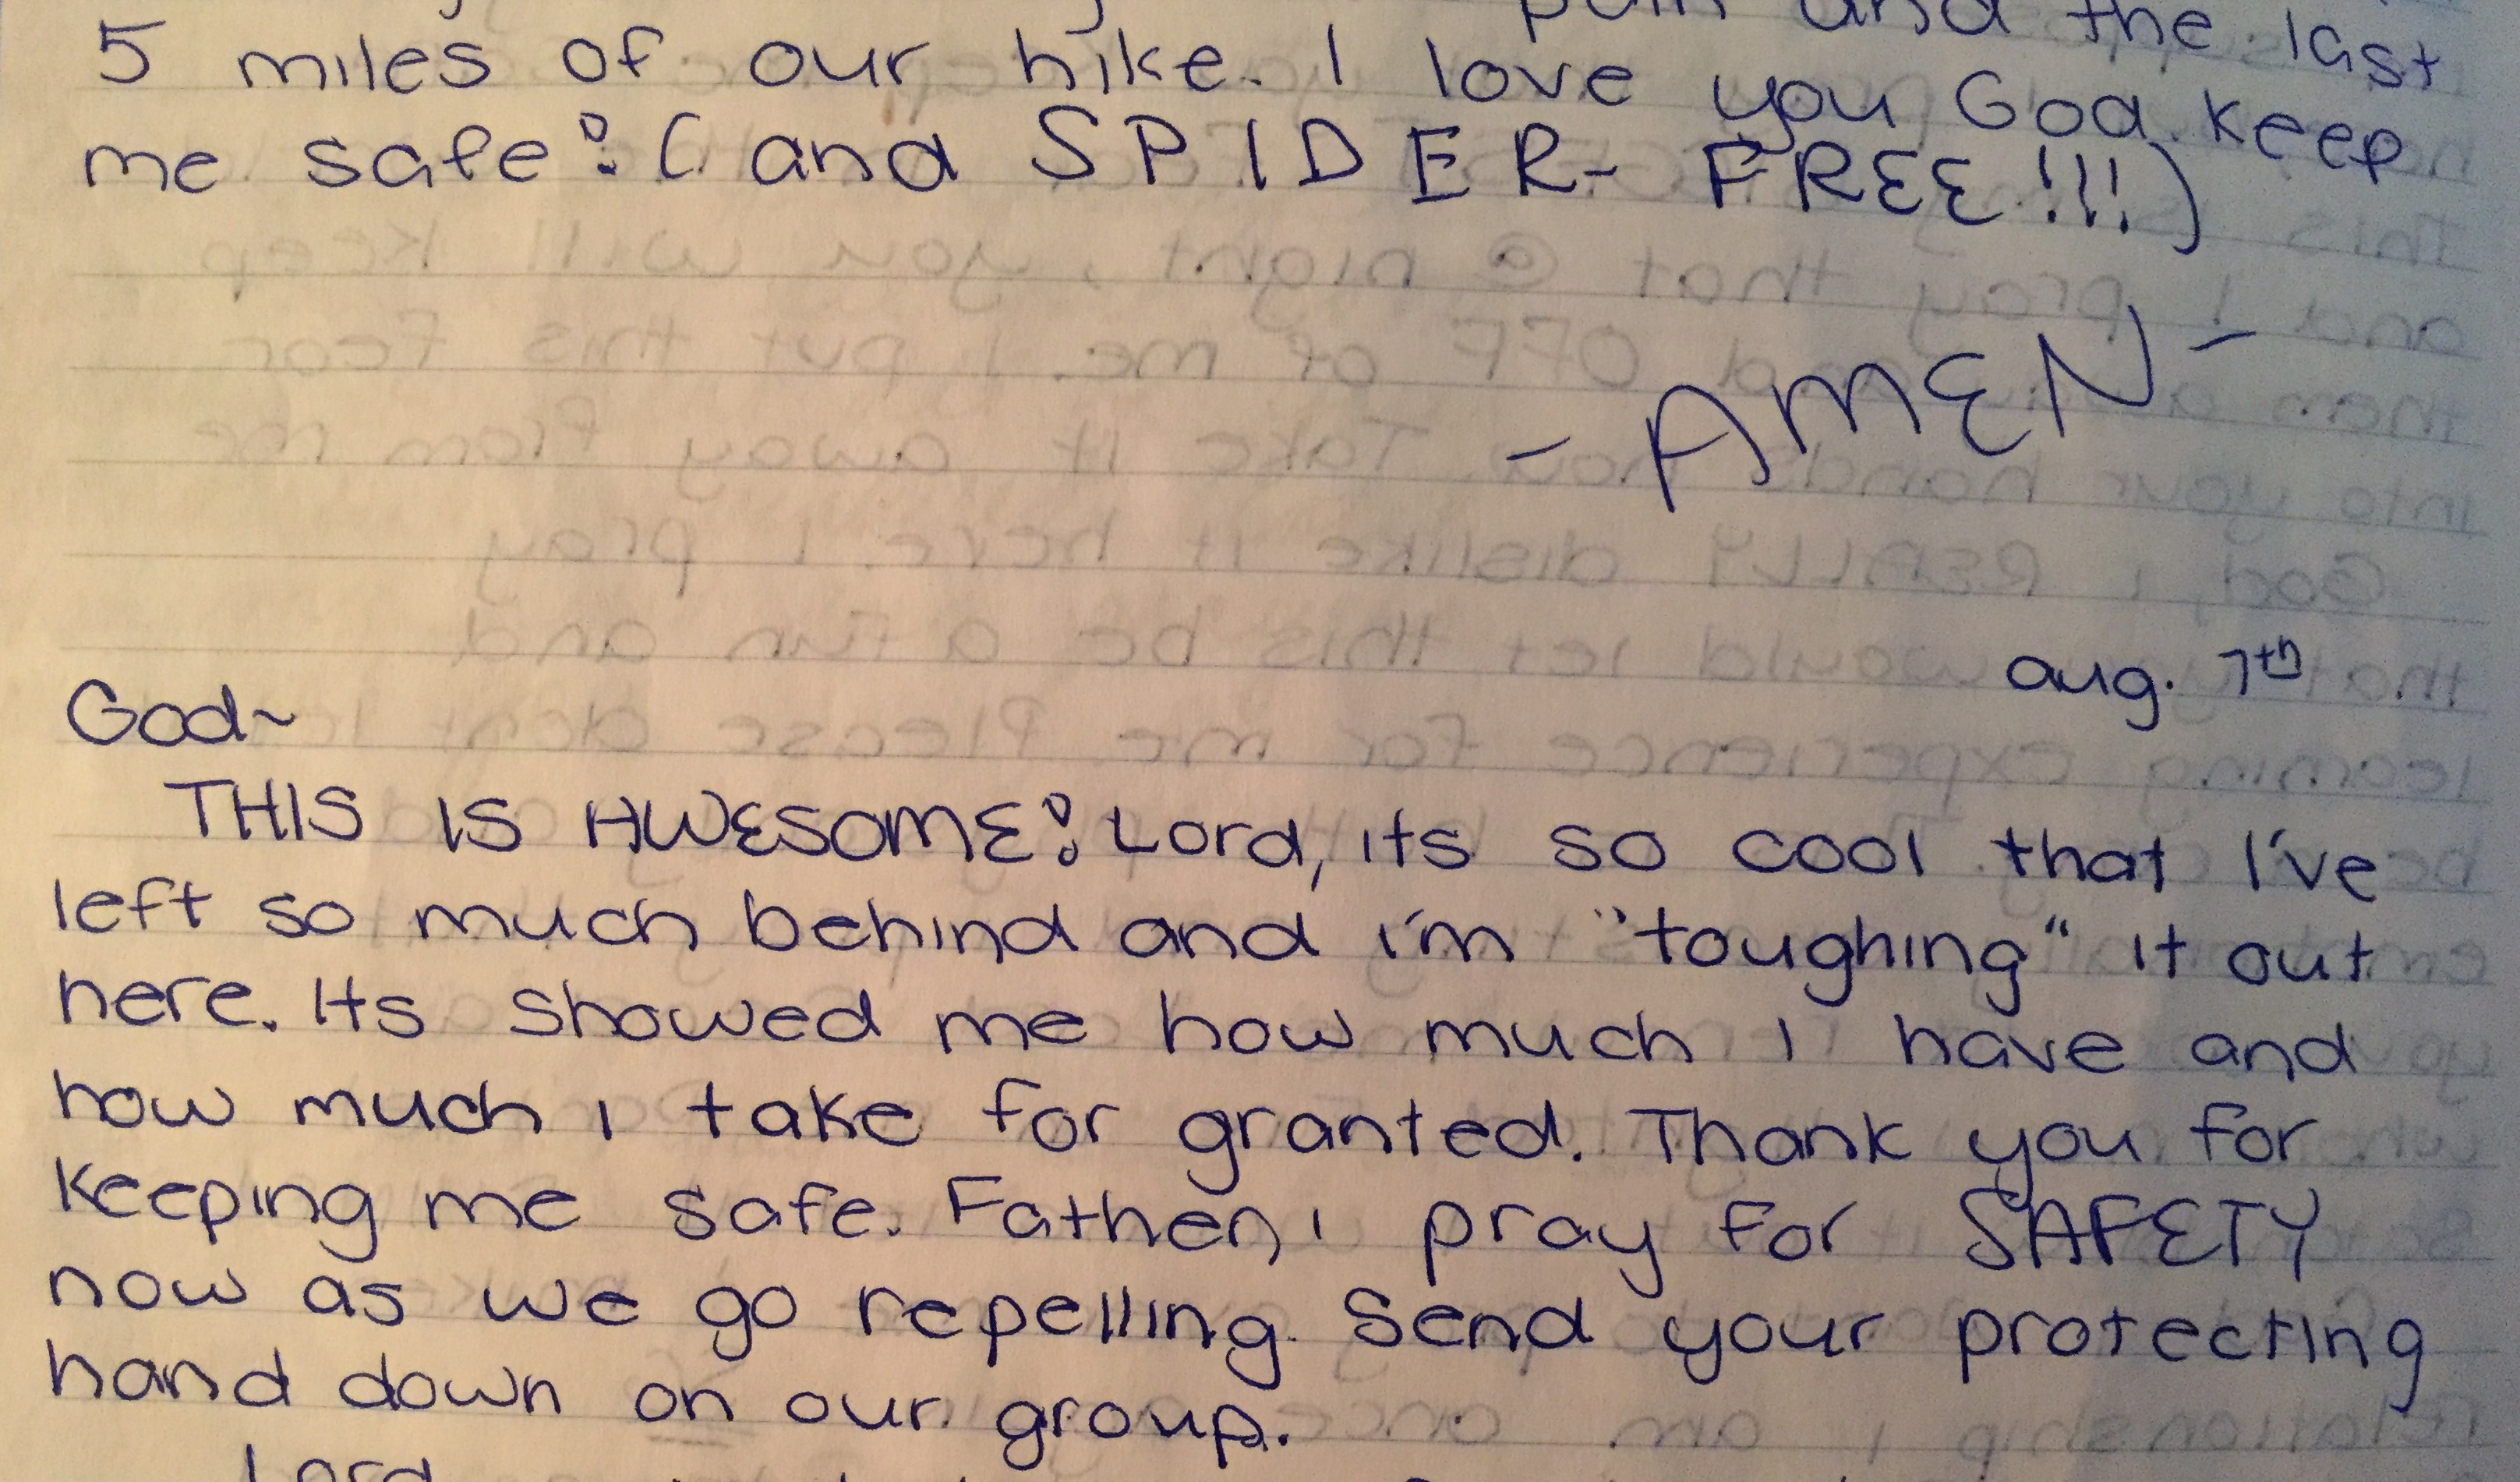 pain and the last
5 miles of our hike. I love you God. Keep
me safe! (and SPIDER-FREE!!!)
-AMEN-
aug. 7th
God~
THIS IS AWESOME! Lord, its so cool that I've
left so much behind and i'm "toughing" it out
here. Its showed me how much I have and
how much i take for granted. Thank you for
keeping me safe. Father, i pray for SAFETY
now as we go repelling. Send your protecting
hand down on our group.
Lord